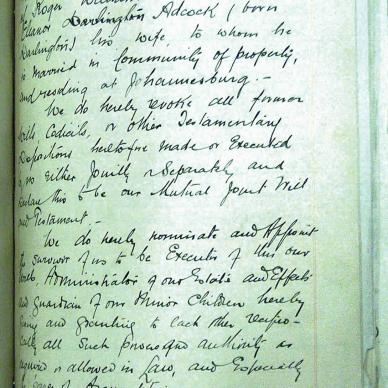 of Roger
Eleanor Darlington Adcock (born
Darlington) his wife to whom he
is married in Community of property,
and residing at Johannesburg.-
We do hereby revoke all former
Wills Codicils, or other Testamentary
Dispositions heretofore made or Executed
by us either Jointly or Separately and
declare this to be our Mutual Joint Will
and Testament -
We do hereby nominate and Appoint
the survivor of us to be Executor of this our
Will, Administrator of our Estate and Effects
and Guardian of our Minor Children hereby
giving and granting to each other recipro-
cally all such power and authority as
required or allowed in law, and Especially